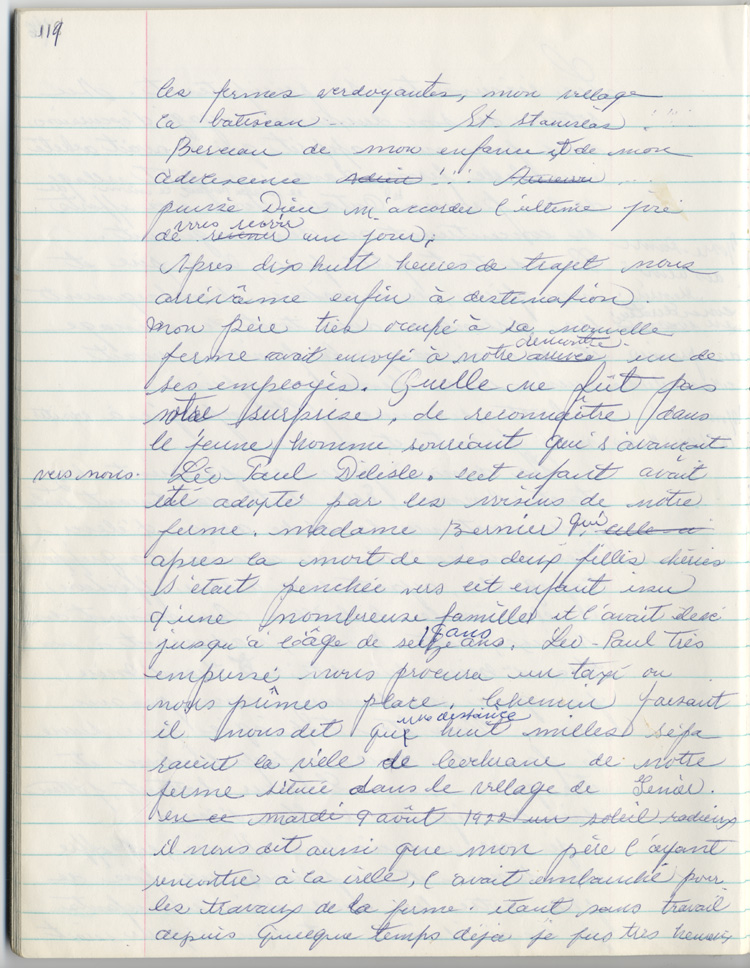 119
les fermes verdoyantes, mon village
la batiscan - St Stanislas !
Berceau de mon enfance et de mon
adolescence !!!
puisse Dieu m'accorder l'ultime joie
vous revoir
de revenir un jour,
Après dix huit heures de trajet nous
arrivâme enfin à destination.
mon père très occupé à sa nouvelle
rencontre
ferme avait envoyé à notre arrivée, un de
ses employés. Quelle ne fût pas
notre surprise, de reconnaître dans
le jeune homme souriant qui s'avançait
vers nous. Léo-Paul Delisle. cet enfant avait
été adopté par les voisins de notre
ferme. madame Bernier qui, celle-ci
après la mort de ses deux filles chéries
s'était penchée vers cet enfant issu
d'une nombreuse famille et l'avait élevé
18 ans
jusqu'à l'âge de ans. Léo-Paul très
empressé nous procura un taxi ou
nous prîmes place. Chemin faisant
une distance
il nous dit que huit milles sépa
raient la ville de Cochrane de notre
ferme située dans le village de Genier.
en ce mardi 9 août 1922 un soleil radieux
il nous dit aussi que mon père l'ayant
rencontré à la ville, l'avait embauché pour
les travaux de la ferme. étant sans travail
depuis quelque temps déjà je fus très heureux